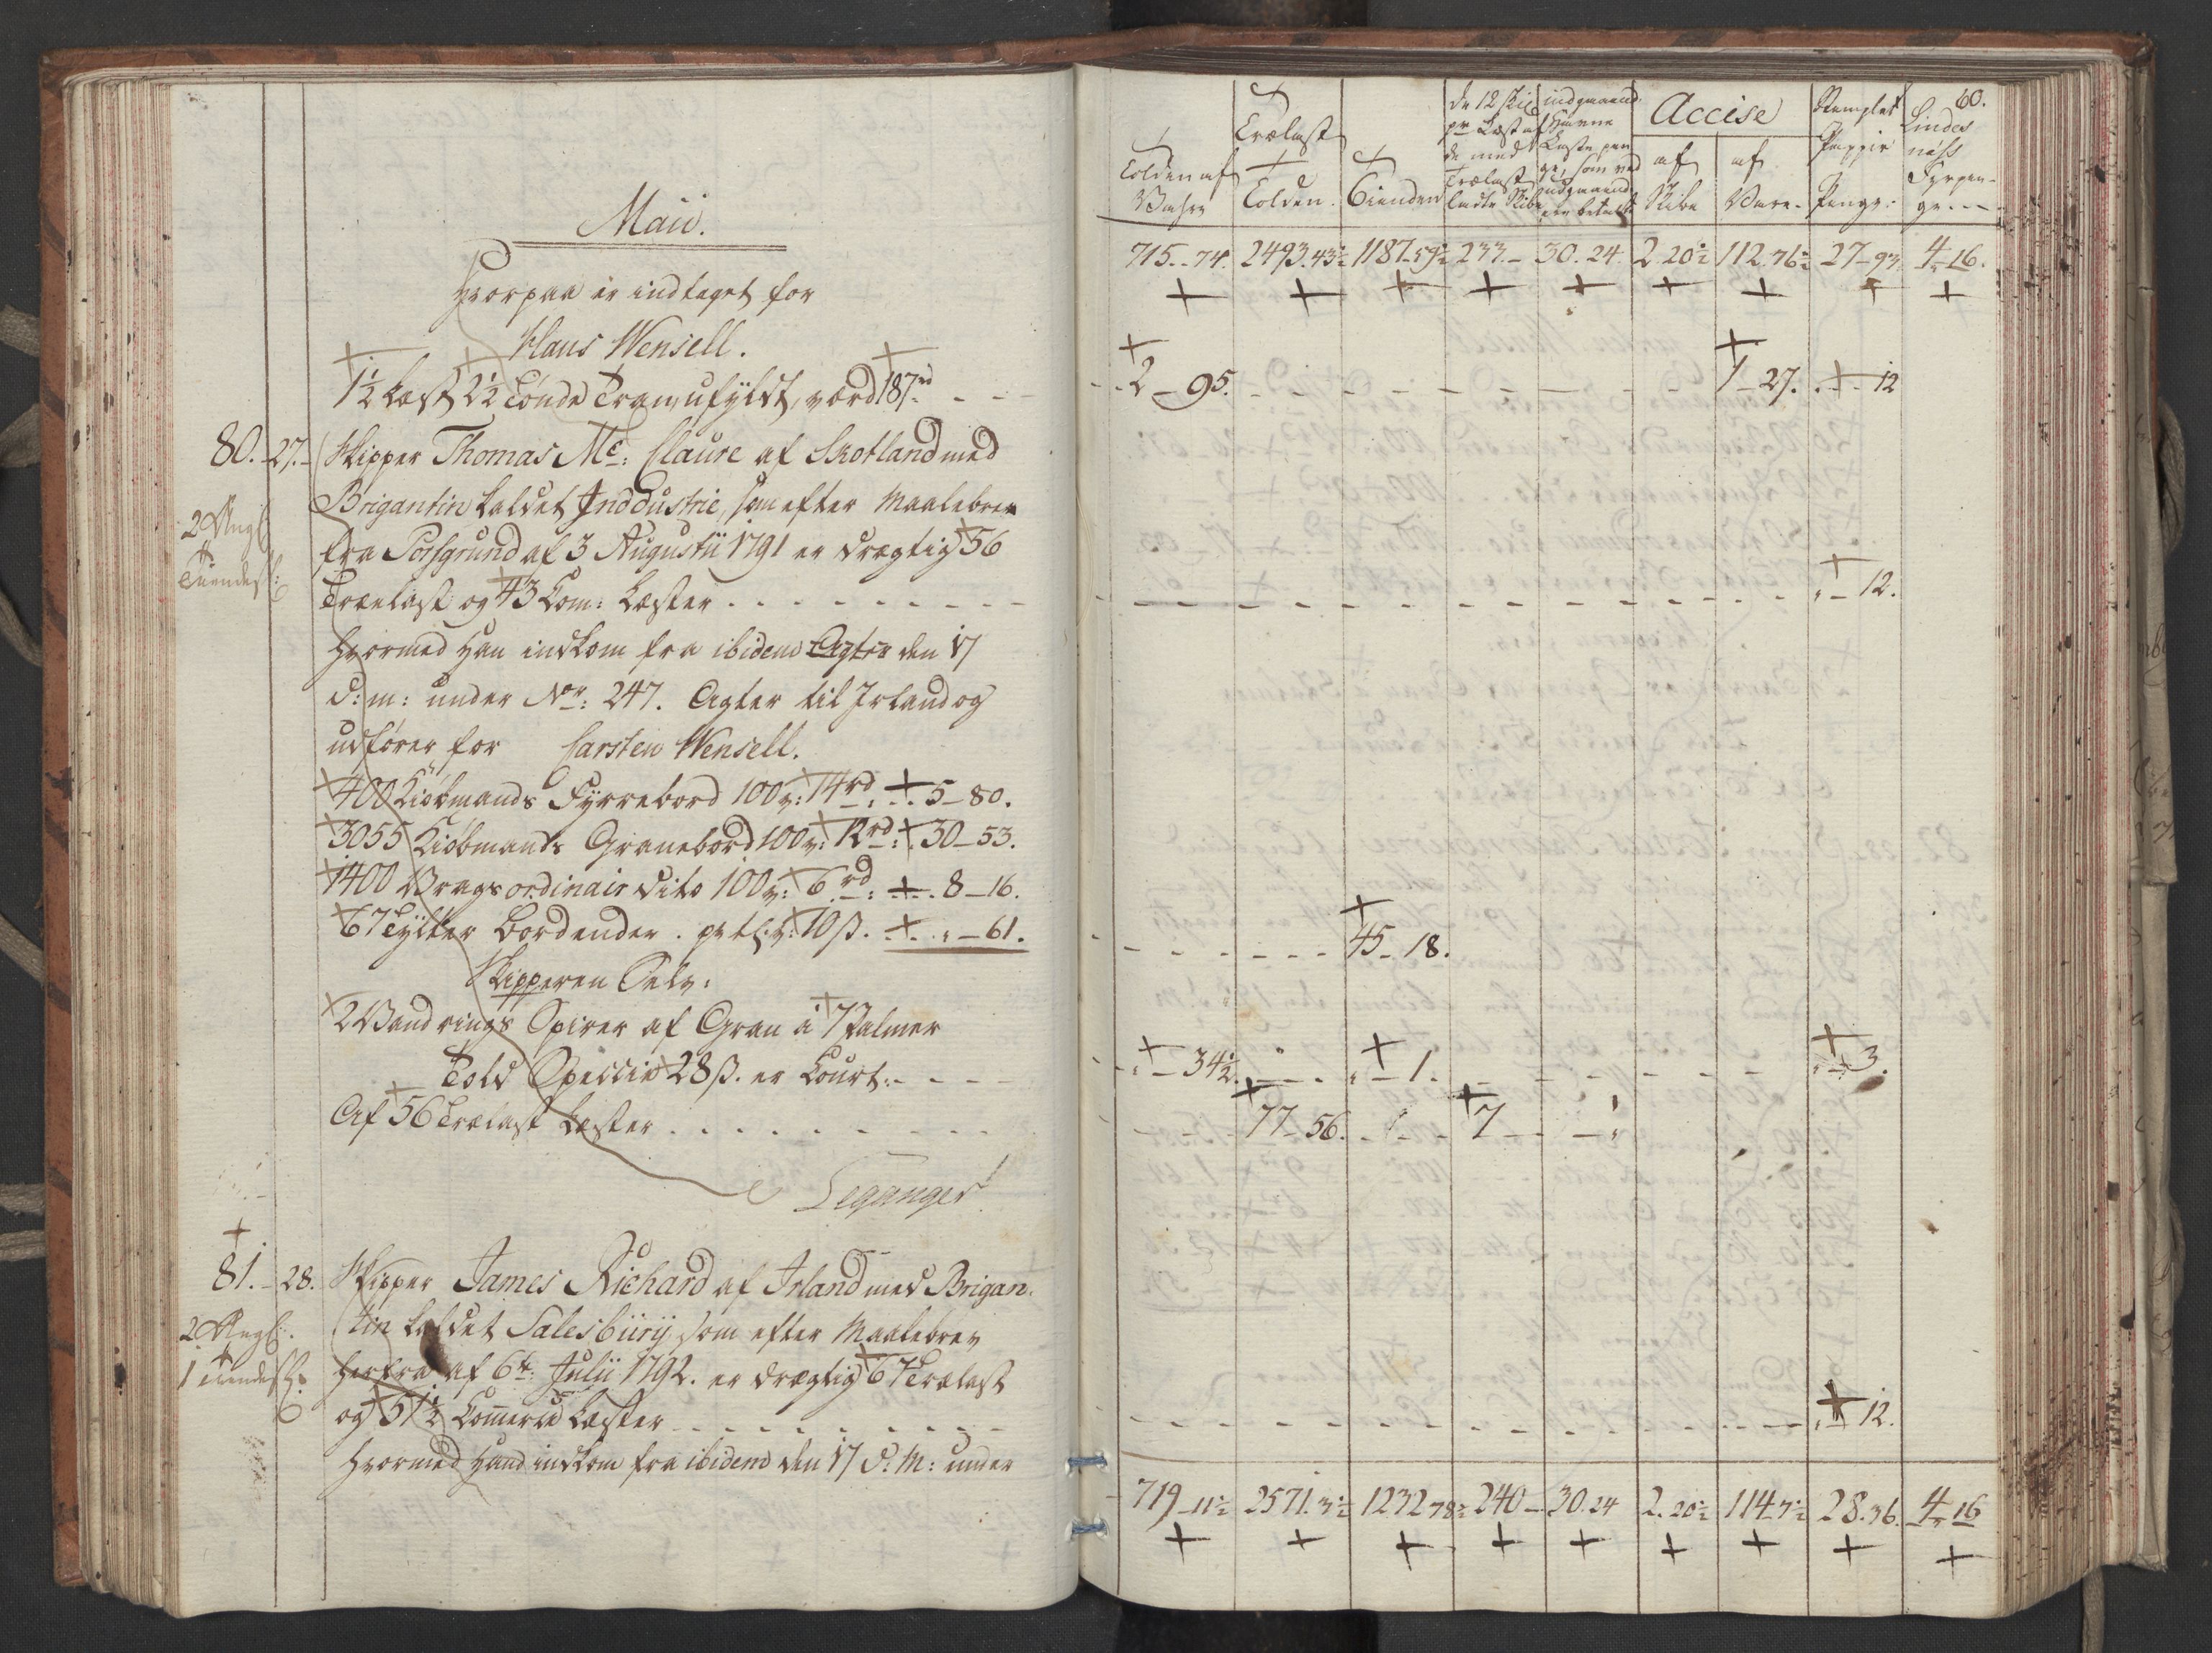 Maii.
Hvorpaa er indtaget for
Klaus Wensell.
1½ Læst 2½ Tönde Tran, ufyldt, værd 187 rd
80. 27. Skipper Thomas Mc: Claure af Skotland med
Brigantin kaldet Inddustrie, som efter Maalebrev
2 Angl:
fra Porsgrund af 3 Augustii 1791 er drægtig 56
Trælast og 43 Com: Læster
hvormed han indkom fra ibidem Agter den 17
d: m: under No: 247. Agter til Irland og
udfører for Carsten Wensell.
400 Kiöbmands Fyrrebord 100 v: 14 rd: 5-80.
3055 Kiöbmands Granebord 100 v: 12 rd: 30-53.
1400 Vrags ordinair dito 100 v: 6 rd: 8-16.
67 Tylter Bordender. pr tl: v: 10 ß. „-61.
Skipperen Selv:
2 Vandrings Spirer af Gran á 7 Palmer
Told Speccie 28 ß. er Court:
Af 56 Trælast Læster
Leganger
81. 28. Skipper James Richard af Irland med Brigan-
2 Angl:
tin kaldet Salesbüry, som efter Maalebrev
1
herfra af 6te Julii 1792. er drægtig 67 Trælast
og 51½ Commerce Læster
hvormed hand indkom fra ibidem den 17 d: M: under
60.
Tolden af Vahre
Trælast Tolden.
Tienden
de 12 skil pr Læst af de med Trælast ladte Skibe
indgaaend. Havne Læste pen ge, som ved indgaaend er betalt
Accise
af Skibe
af Vare.
Stemplet Pappir Penge:
Lindes næss Fyrpen- ge.
715.-74. 2493.43½ 1187.59½ 233.- 30.24. 2.20½ 112.76½ 27-93. 4-16.
2-95. 1-27. „-12
„-12.
45-18.
„-34½. „-1. „-3.
77-56. 7-
„-12.
719-11½ 2571.3½ 1232.78½ 240- 30.24 2.20½ 114.7½ 28.36. 4-16